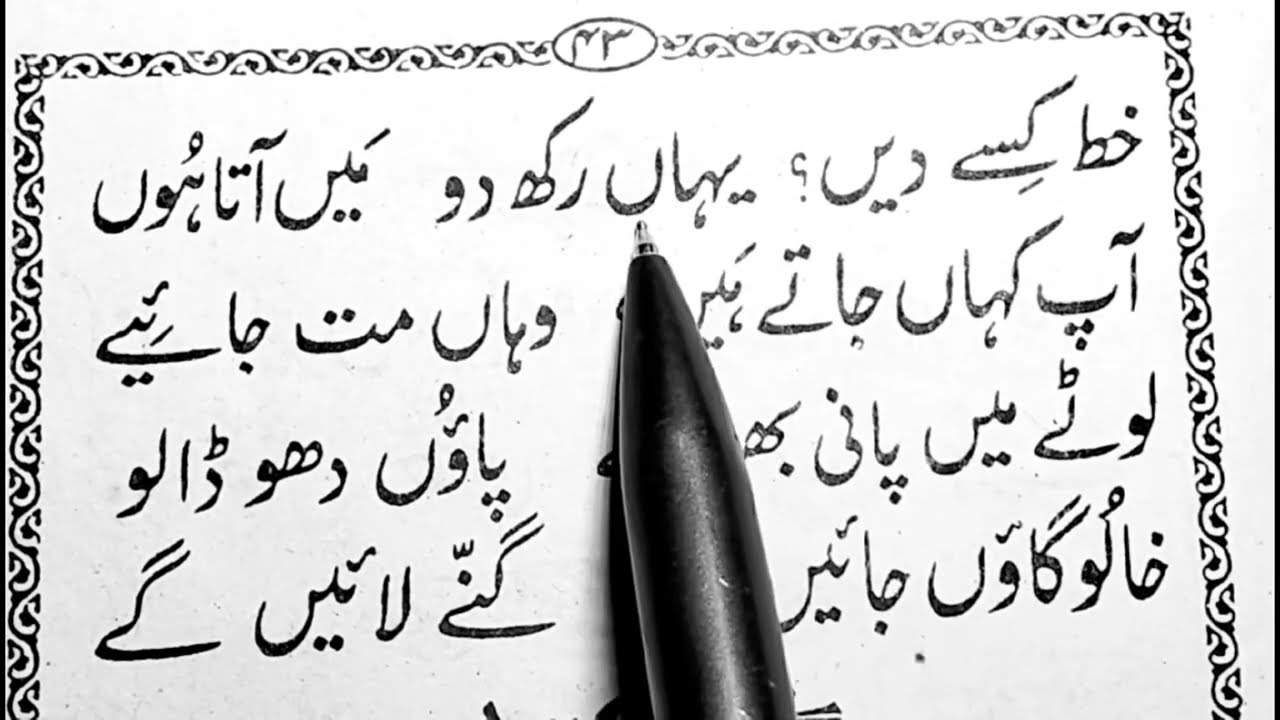 خط کِسے دیں؟ یہاں رکھ دو مَیں آتا ہُوں
آپ کہاں جاتے ہَیں وہاں مت جائیے
لوٹے میں پانی پاؤُں دھو ڈالو
خالُو گاؤں جائیں گنّے لائیں گے